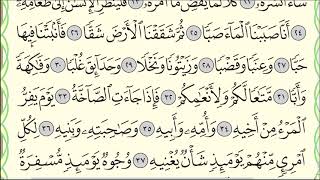 شَآءَ أَنشَرَهُۥ ٢٢ كَلَّا لَمَّا يَقْضِ مَآ أَمَرَهُۥ ٢٣ فَلْيَنظُرِ ٱلْإِنسَٰنُ إِلَىٰ طَعَامِهِۦٓ
٢٤ أَنَّا صَبَبْنَا ٱلْمَآءَ صَبًّا ٢٥ ثُمَّ شَقَقْنَا ٱلْأَرْضَ شَقًّا ٢٦ فَأَنۢبَتْنَا فِيهَا
حَبًّا ٢٧ وَعِنَبًا وَقَضْبًا ٢٨ وَزَيْتُونًا وَنَخْلًا ٢٩ وَحَدَآئِقَ غُلْبًا ٣٠ وَفَٰكِهَةً
وَأَبًّا ٣١ مَّتَٰعًا لَّكُمْ وَلِأَنْعَٰمِكُمْ ٣٢ فَإِذَا جَآءَتِ ٱلصَّآخَّةُ ٣٣ يَوْمَ يَفِرُّ
ٱلْمَرْءُ مِنْ أَخِيهِ ٣٤ وَأُمِّهِۦ وَأَبِيهِ ٣٥ وَصَٰحِبَتِهِۦ وَبَنِيهِ ٣٦ لِكُلِّ
ٱمْرِئٍ مِّنْهُمْ يَوْمَئِذٍ شَأْنٌ يُغْنِيهِ ٣٧ وُجُوهٌ يَوْمَئِذٍ مُّسْفِرَةٌ